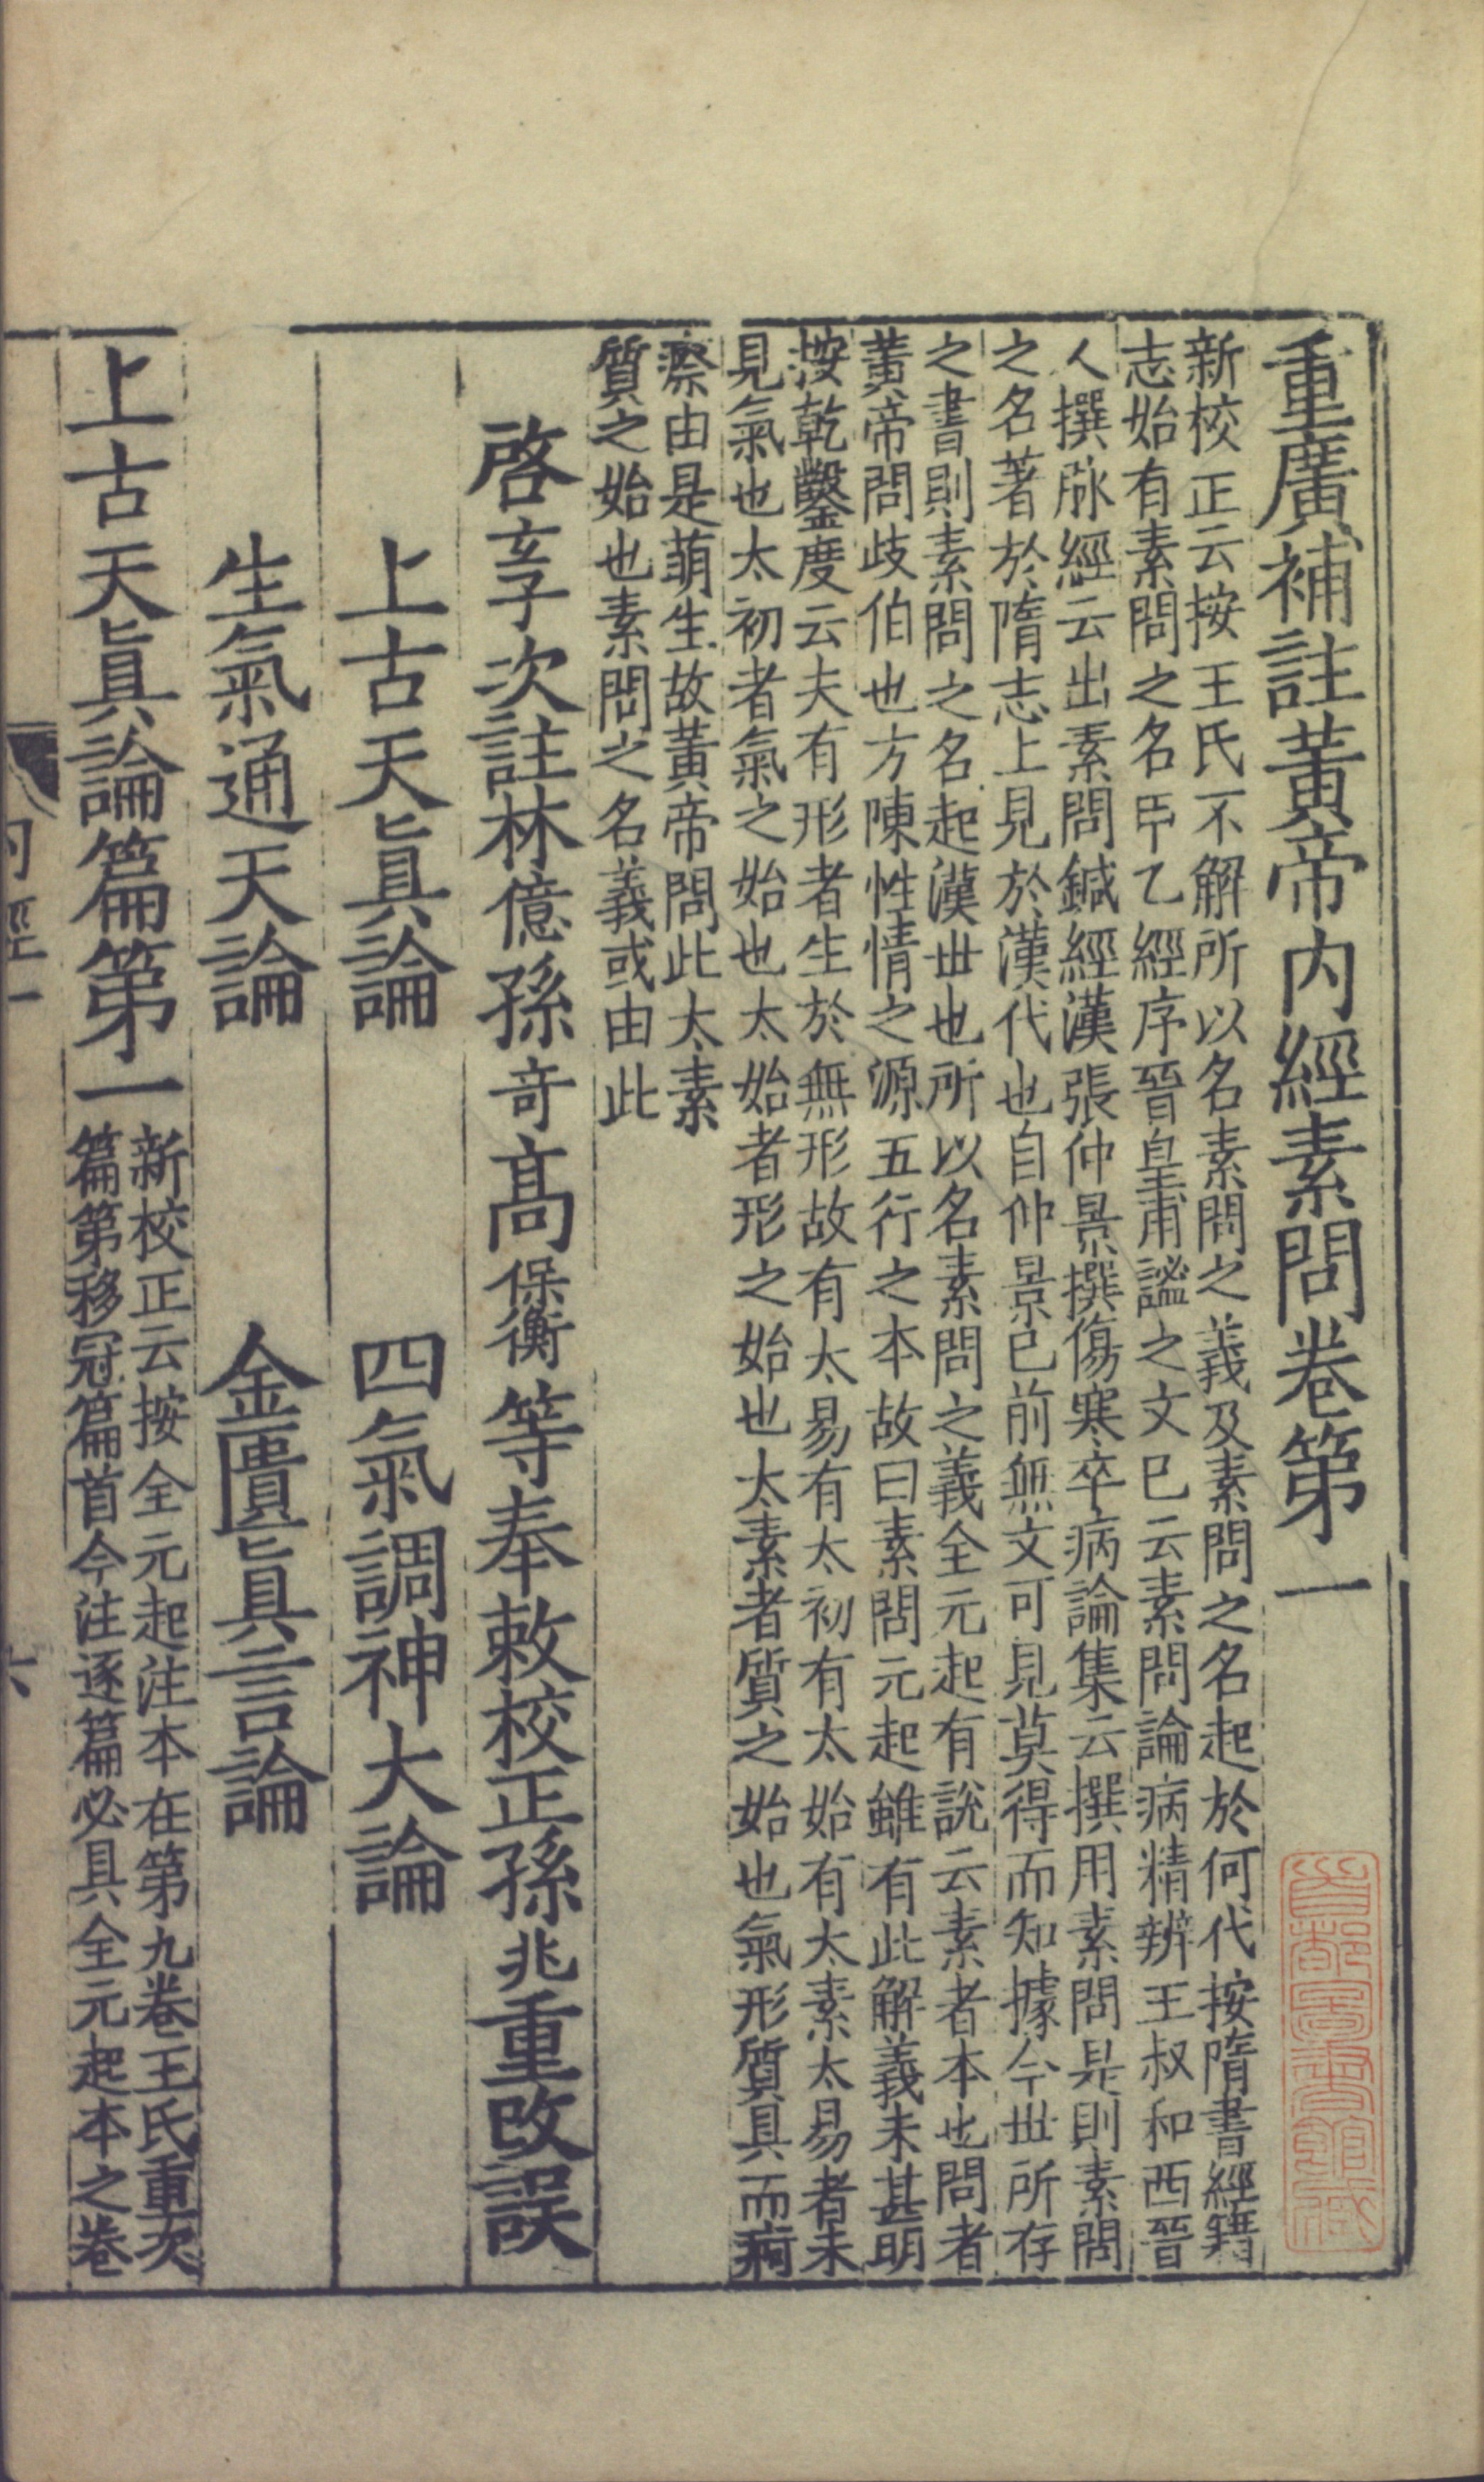 重廣補註黃帝内經素問卷第一
新校正云按王氏不解所以名素問之義及素問之名起於何代按隋書經籍
志始有素問之名甲乙經序晉皇甫謐之文已云素問論病精辨王叔和西晉
人撰脉經云出素問鍼經漢張仲景撰傷寒卒病論集云撰用素問是則素問
之名著於隋志上見於漢代也自仲景已前無文可見莫得而知據今世所存
之書則素問之名起漢世也所以名素問之義全元起有說云素者本也問者
黃帝問歧伯也方陳性情之源五行之本故曰素問元起雖有此解義未甚明
按乾鑿度云夫有形者生於無形故有太易有太初有太始有太素太易者未
見氣也太初者氣之始也太始者形之始也太素者質之始也氣形質具而痾
瘵由是萌生故黃帝問此太素
質之始也素問之名義或由此
啓玄子次註林億孫奇高保衡等奉敕校正孫兆重改誤
上古天真論　四氣調神大論
生氣通天論　金匱真言論
上古天真論篇第一
新校正云按全元起注本在第九卷王氏重次
篇第移冠篇首今注逐篇必具全元起本之卷
内經一
六
首都圖書館藏